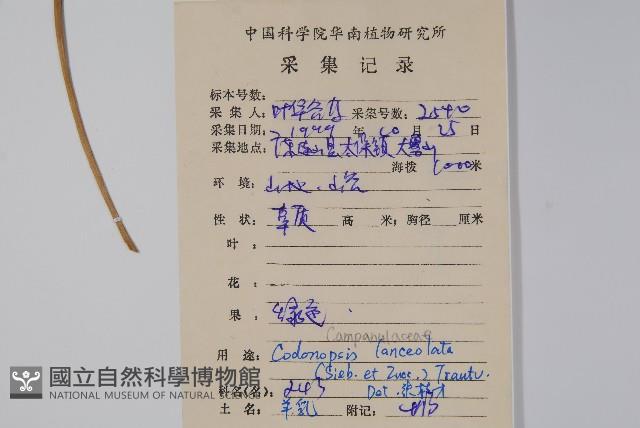 中国科学院华南植物研究所
采集记录
标本号数:
采集人: 叶华谷 采集号数: 2540
采集日期: 1999 年 10 月 25 日
采集地点: 连山县太保镇大雾山
海拨 1000 米
环境: 山地.
性状: 草质 高 米; 胸径 厘米
叶:
花:
果: 绿色.
Campanulaceae
用途: Codonopsis lanceolata
(Sieb. et Zucc.) Trautv.
科名(名): 243 Det.
土名: 羊乳 附记:
國立自然科學博物館
NATIONAL MUSEUM OF NATURAL